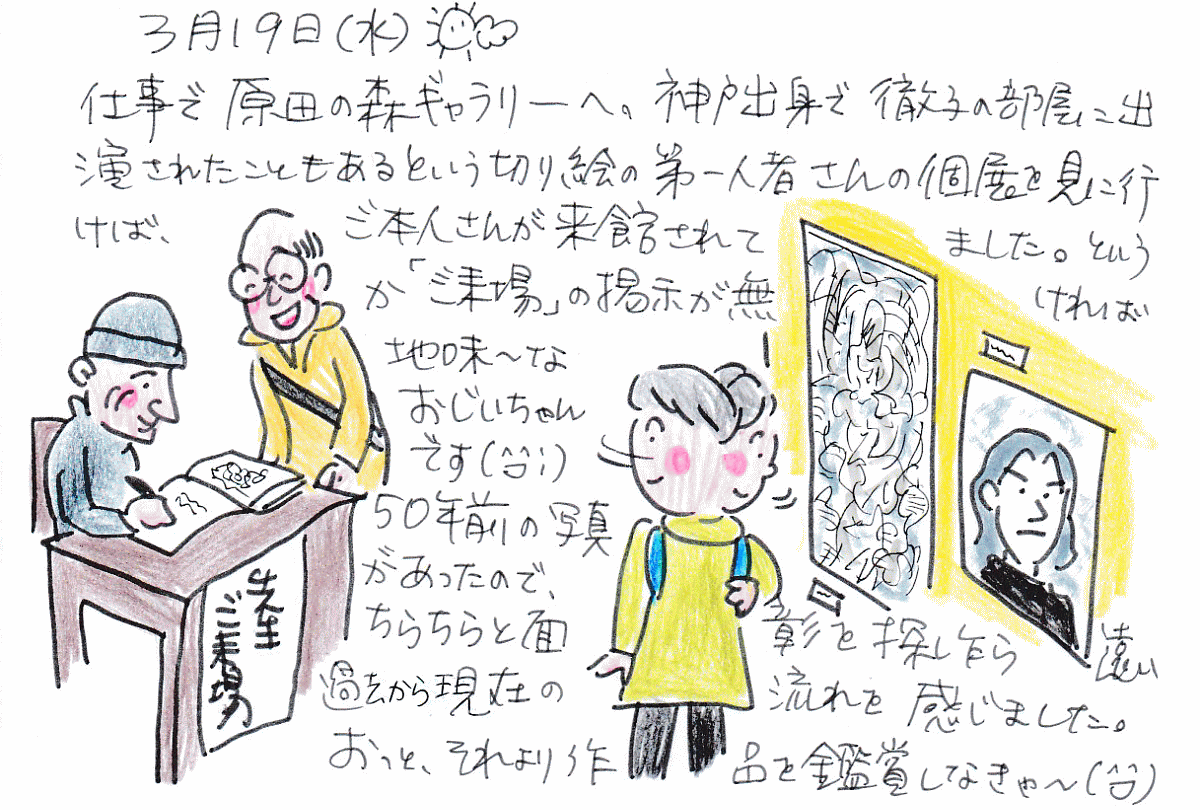 3月19日(水)
仕事で原田の森ギャラリーへ。神戸出身で徹子の部屋に出
演されたこともあるという切り絵の第一人者さんの個展を見に行
けば、ご本人さんが来館されてました。という
か「ご来場」の掲示が無ければ
地味〜な
おじいちゃん
です(^^;)
50年前の写真
があったので、
ちらちらと面影を探し乍ら遠い
過去から現在の流れを感じました。
おっと、それより作品を鑑賞しなきゃ〜(^^)
先生ご来場